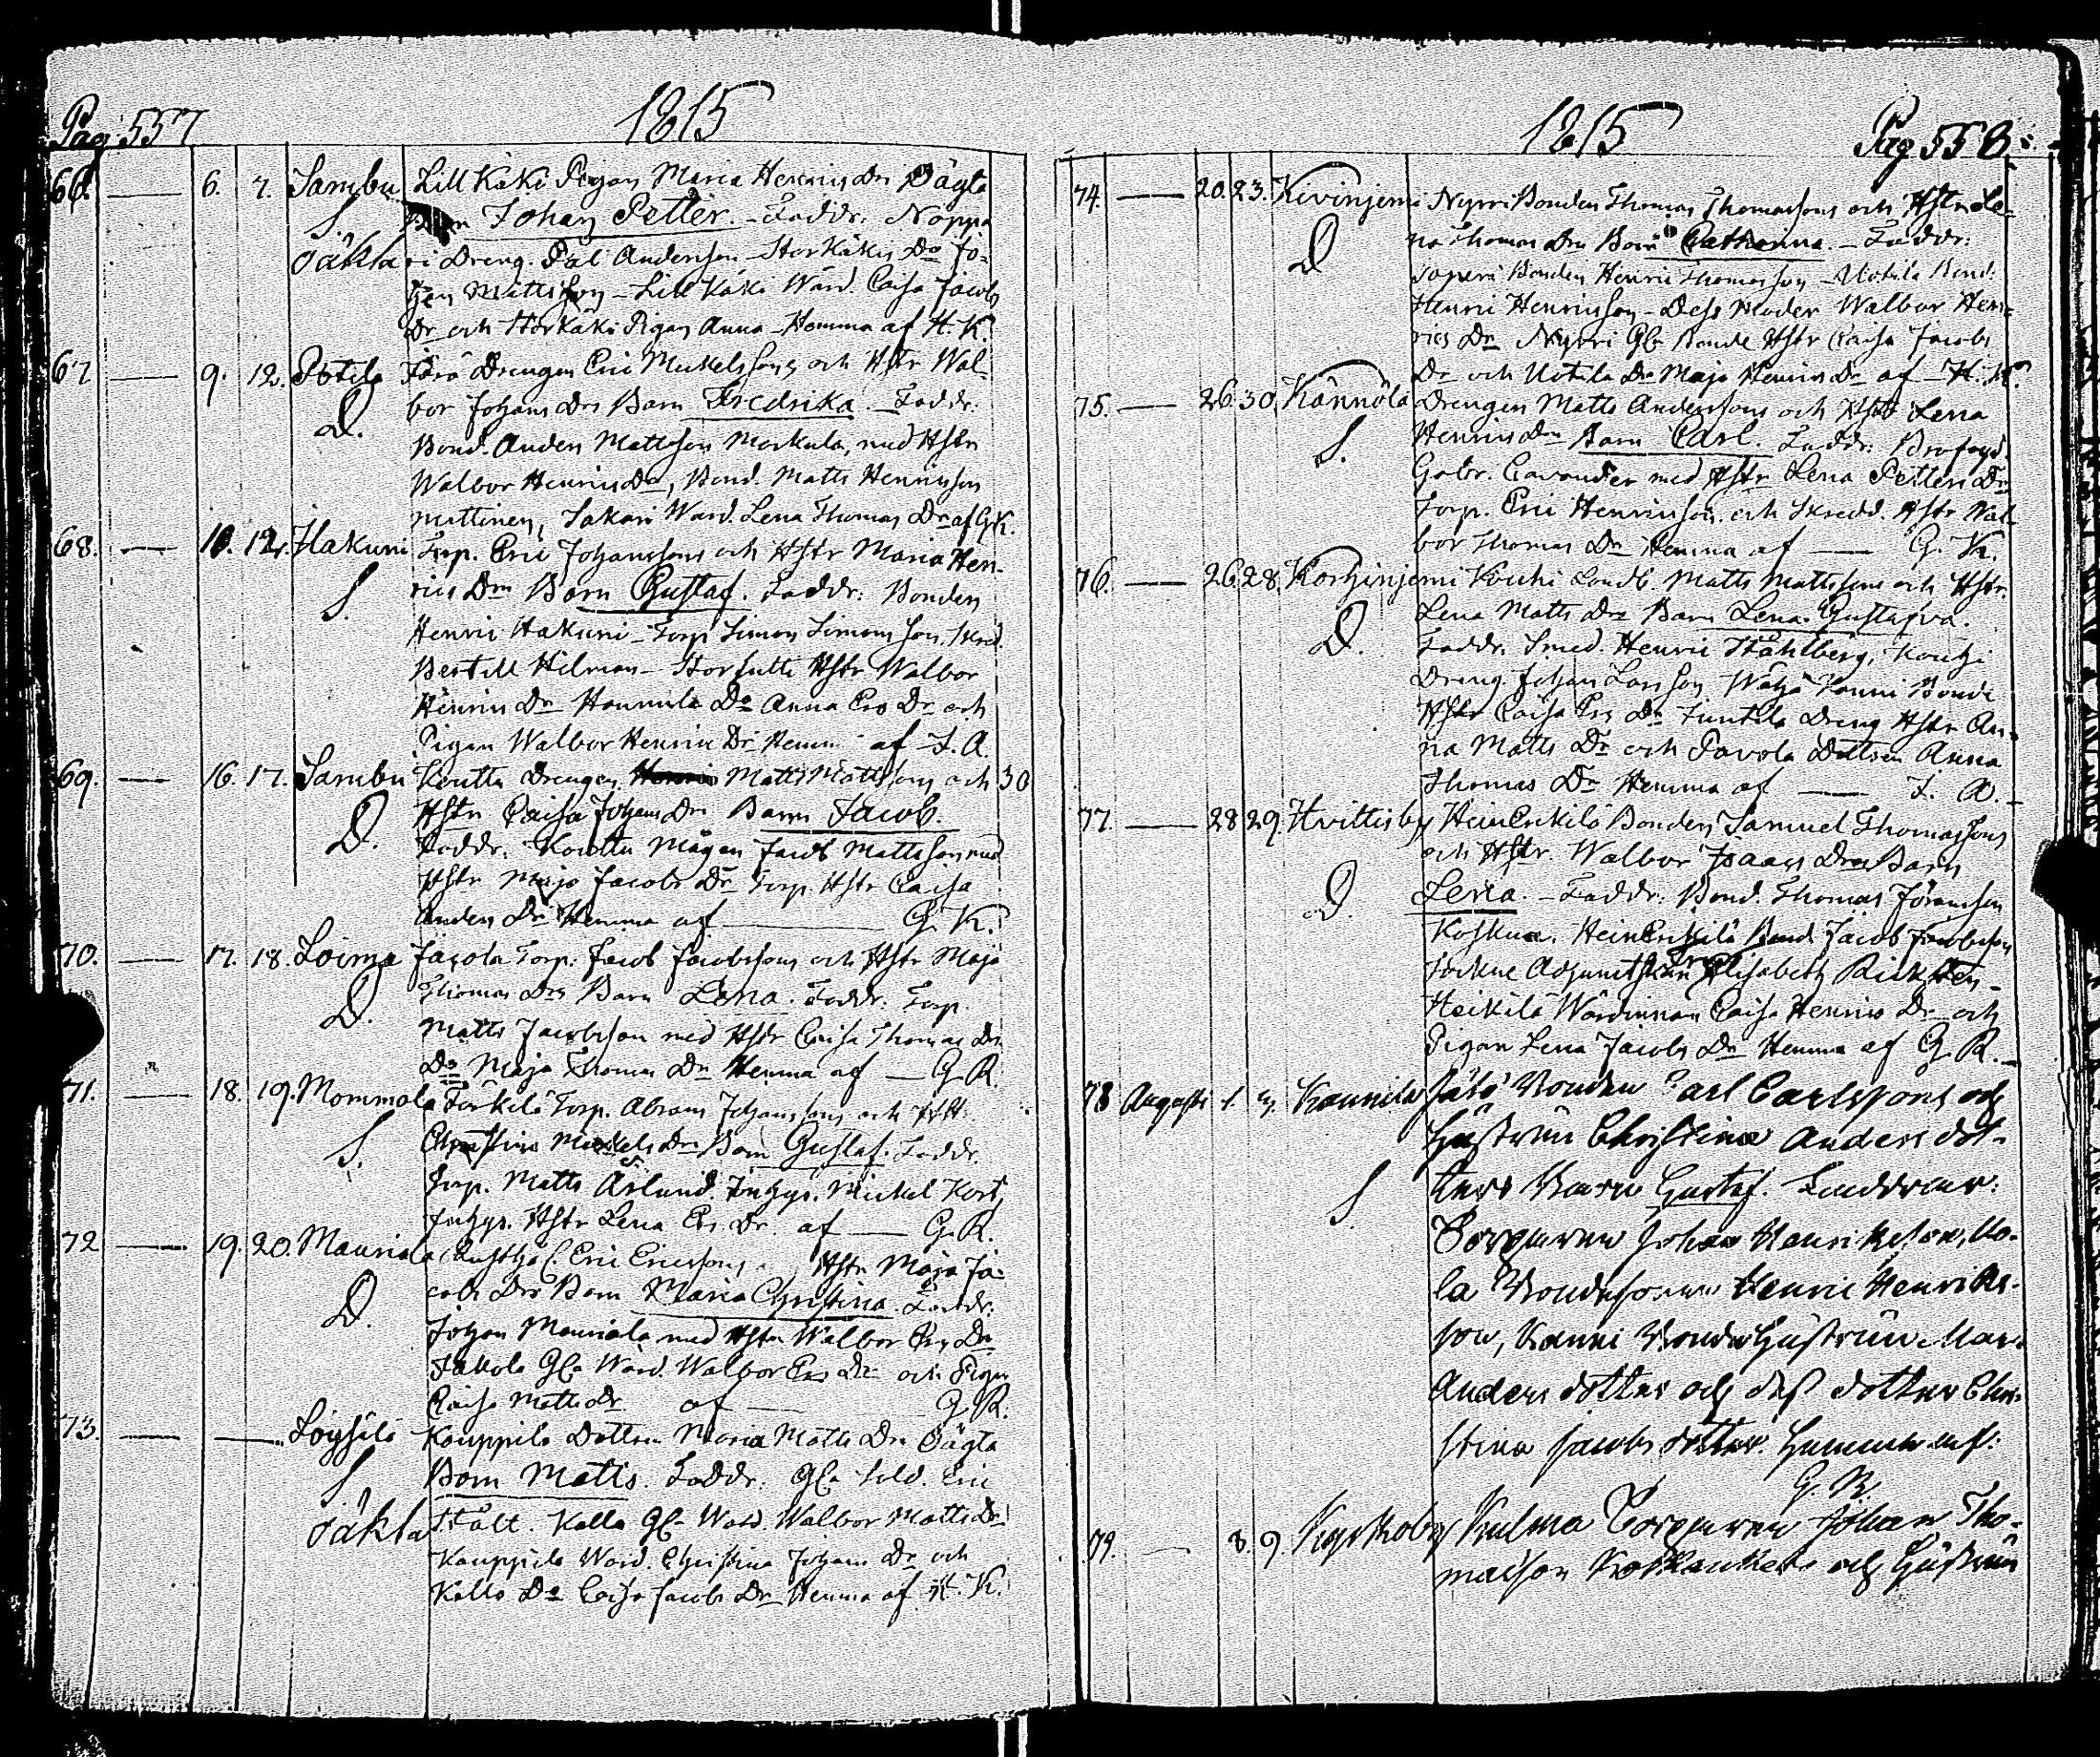 Pag: 557
1815
66. 6. 7. Sambu Lill Käki Pigan Maria Henrics Drs Oägta
S. Barn Johan Petter. – Faddr: Noppa
oäkta ri Dreng. Pål Andersson – Storkäkis Do Jo-
han Mattsson – Lill Käki Wärd. Caisa Jacobs
Dr och Storkäki Pigan Anna – Hemma af H. K.
67 9. 12. Potila Törö Drengen Eric Mickelssons och Hstr Wal-
D. bor Johans Drs Barn Fredrika. – Faddr:
Bond. Anders Mattsson Markula, med Hstr
Walbor Henrics Dr, Bond. Matts Henricsson
Mattinen, Sakari Ward. Lena Thomas Dr af G. K.
68. 10. 12. Hakuni Torp. Eric Johanssons och Hstr Maria Hen-
S. rics Drs Barn Gustaf. Faddr: Bonden
Henric Hakuni – Torp Simon Simonsson, Skrd.
Bertill Hilman – Hstr Walbor
Henrics Dr Hannula Do Anna Ers Dr och
Pigan Walbor Henrics Dr Hemma af I. A.
69. 16. 17. Sambu Kouttu Drengen Matts Mattssons och 30
D. Hstr Caisa Johans Drs Barn Jacob.
Faddr. Kouttu Mågen Jacob Mattsson med
Hstr Maja Jacobs Dr Torp. Hstr Caisa
Anders Dr Hemma af G. K.
70. 17. 18. Loima Jacola Torp: Jacob Jacobssons och Hstr Maja
D. Thomas Drs Barn Lena. Faddr: Torp.
Matts Jacobsson med Hstr Caisa Thomas Dr
Do Maja Thomas Dr Hemma af G. R.
71. 18. 19. Mommola Törkilä Torp. Abram Johanssons och Hstr
S. Christina Mickels Drs Barn Gustaf. Faddr.
Torp. Matts Åslund. Inhys. Mickel Kort,
Inhys. Hstr Lena Ers. Dr af G. R.
72 19. 20. Mauriala Rusthå. Eric Ericssons Hstr Maja Ja-
D. cobs Drs Barn Maria Christina. Faddr:
Johan Mauriala med Hstr Walbor Ers Dr
Gla Wärd. Walbor Ers Dr och Pigan
Caisa Matts Dr af G. R.
73. Löysälä Kauppila Dottren Maria Matts Drs Oägta
S. Barn Matts. Faddr: Gla Sold. Eric
oäkta Stålt. Kallo Gla Wärd. Walbor Matts Dr
Kauppila Wärd. Christina Johans Dr och
Kallo Do Caisa Jacobs Dr Hemma af H. K.
1815
Pag 558.
74. 20. 23. Kivinjemi Nyrri Bonden Thomas Thomassons och Hstr Le-
D na Thomas Drs Barn Catharina. – Faddr:
Bonden Henric Thomasson – Uotila Bond.
Henric Henricsson – Dess Moder Walbor Hen-
rics Dr Nyrri Gla Bonde Hstr Caisa Jacobs
Dr och Uotila Do Maja Henrics Dr af H. K.
75. 26. 30. Kännölä Drengen Matts Anderssons och Hstr Lena
S. Henrics Drs Barn Carl. Faddr: Brofogd.
Gabr. Cavander med Hstr Lena Petters Dr
Torp. Eric Henricsson och Skredd. Hstr Wal-
bor Thomas Dr Hemma af G. K.
76. 26. 28. Korhinjemi Kouhi Landb. Matts Mattssons och Hstr.
D. Lena Matts Drs Barn Lena Gustafva.
Faddr. Smed. Henric Ståhlberg, Kouhi
Dreng. Johan Larsson Wähä Bonde
Hstr Caisa Ers Dr Juntila Dreng Hstr An-
na Matts Dr och Pavola Dottren Anna
Thomas Dr Hemma af I. A.
77. 28 29. Hvittisby Heinenkilä Bonden Samuel Thomassons
och Hstr. Walbor Isaacs Drs Barn
D. Lena. – Faddr: Bond. Thomas Jöransson
Koskua. Heinenkilä Bond Jacob Jacobsson
Elisabeth
Heikilä Wärdinnan Caisa Henrics Dr och
Pigan Lena Jacobs Dr Hemma af G. R.
78 Augusti 1. 2. Kannila Bonden Carl Carlssons och
Hustrun Christina Anders dot-
S. ters Barn Gustaf. Faddrar:
Torparen Johan Henriksson, Uo-
la Bondesonen Henric Henriks-
son, Kanni Bonde Hustrun Mar.
Anders dotter och dess dotter Chri-
stina Jacobs dotter. Hemma af:
G. R.
79. 8. 9. Kyrkoby Kulma Torparen Johan Tho-
masson och Hustrun